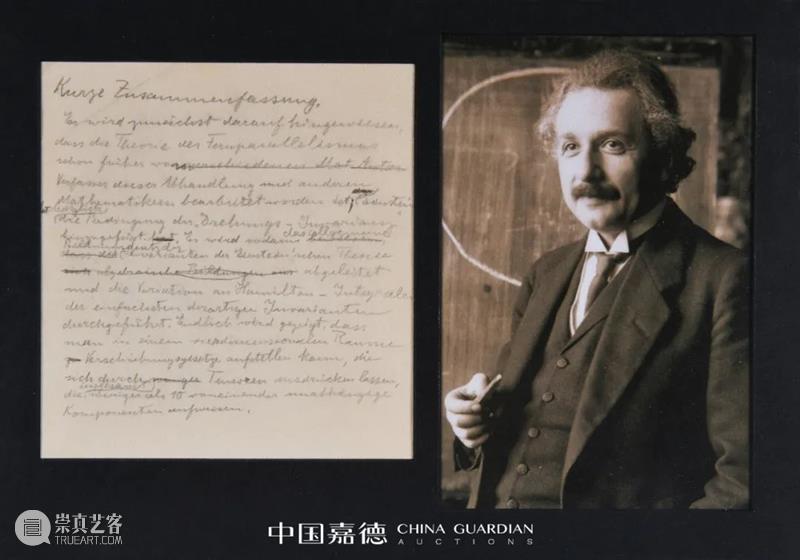 Kurze Zusammenfassung.
Es wird zunächst darauf hingewiesen,
dass die Theorie des Fernparallelismus
schon früher von verschiedenen
Verfasser dieser Abhandlung und anderen
Mathematikern bearbeitet worden ist,
die Bedingung der Drehungs-Invarianz
hinzugefügt hat. Es wird sodann das allgemeine
Invarianten der Theorie
abgeleitet
und die Variation an Hamilton-Integralen
der einfachsten derartigen Invarianten
durchgeführt. Endlich wird gezeigt, dass
man in einem Raume
Verschiebungsgesetze aufstellen kann, die
sich durch Tensoren ausdrücken lassen,
die weniger als 10 voneinander unabhängige
Komponenten aufweisen.
中国嘉德 CHINA GUARDIAN
AUCTIONS
崇真艺客
TRUEART.COM